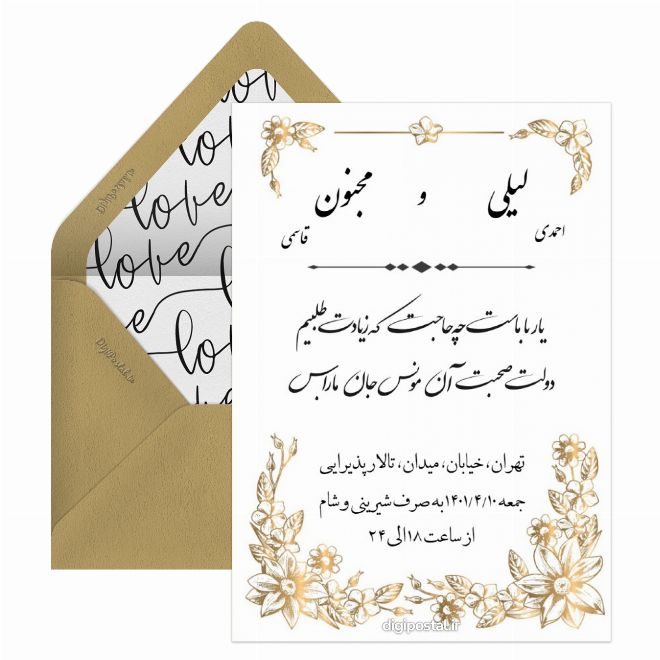 love
love
love
love
lo
e
love
DigiPostal.ir
DigiPostal.ir
لیلی و مجنون
احمدی قاسمی
یار با ماست چه حاجت که زیادت طلبیم
دولت صحبت آن مونس جان ما را بس
تهران، خیابان، میدان، تالار پذیرایی
جمعه ۱۴۰۱/۴/۱۰ به صرف شیرینی و شام
از ساعت ۱۸ الی ۲۴
digipostal.ir